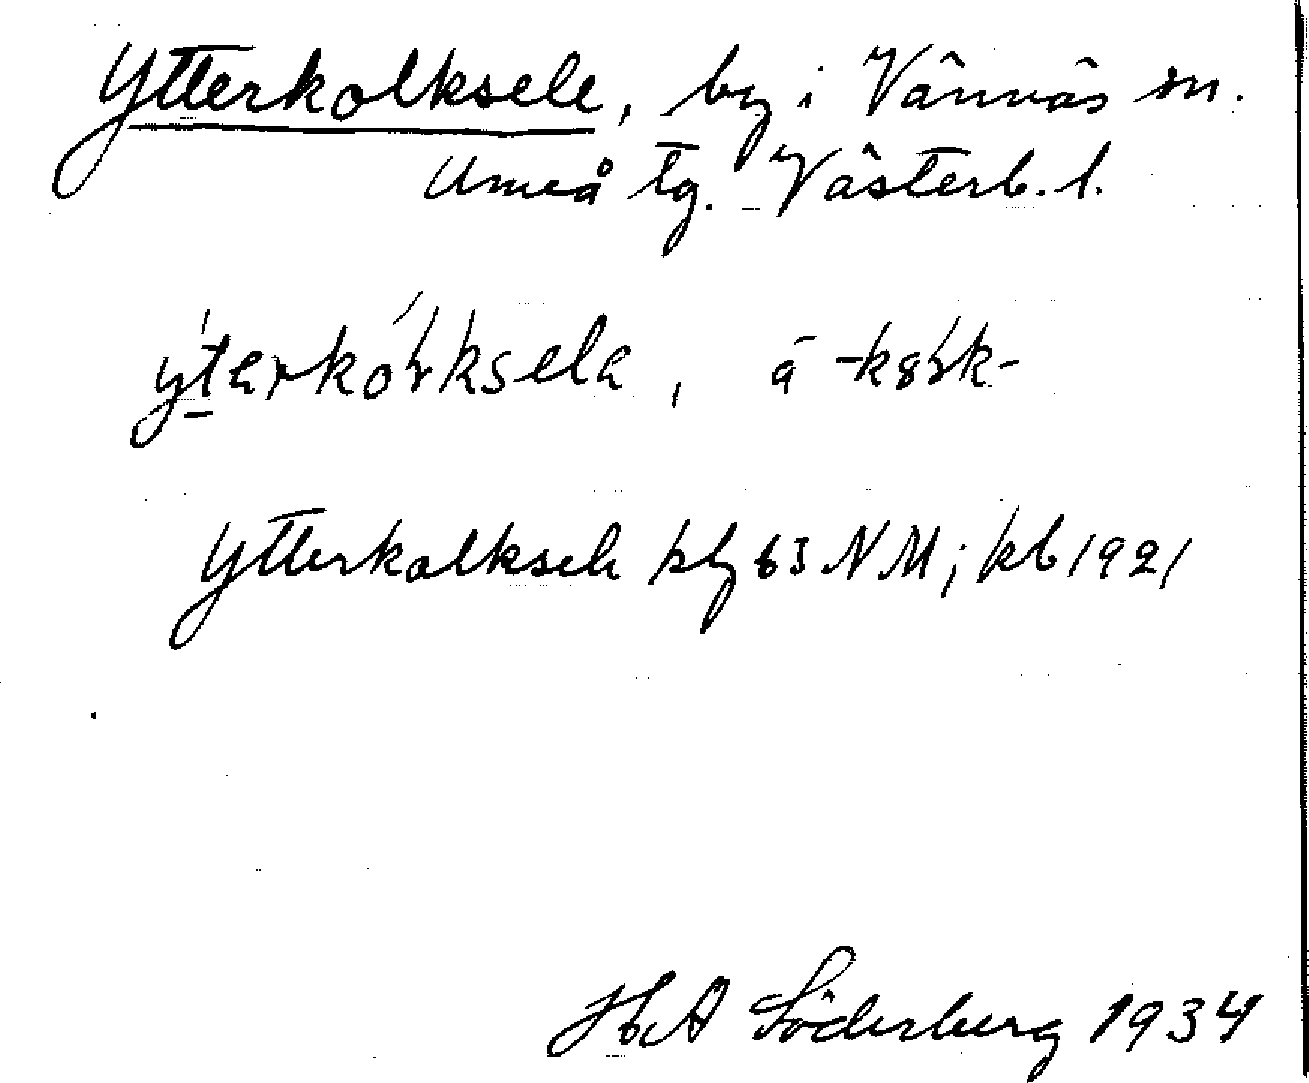 Ytterkolksele, by i Vännäs sn.
Umeå tg. Västerb. l.
Ytterkolksele bl 63 NM; kb 1921
H A Söderberg 1934